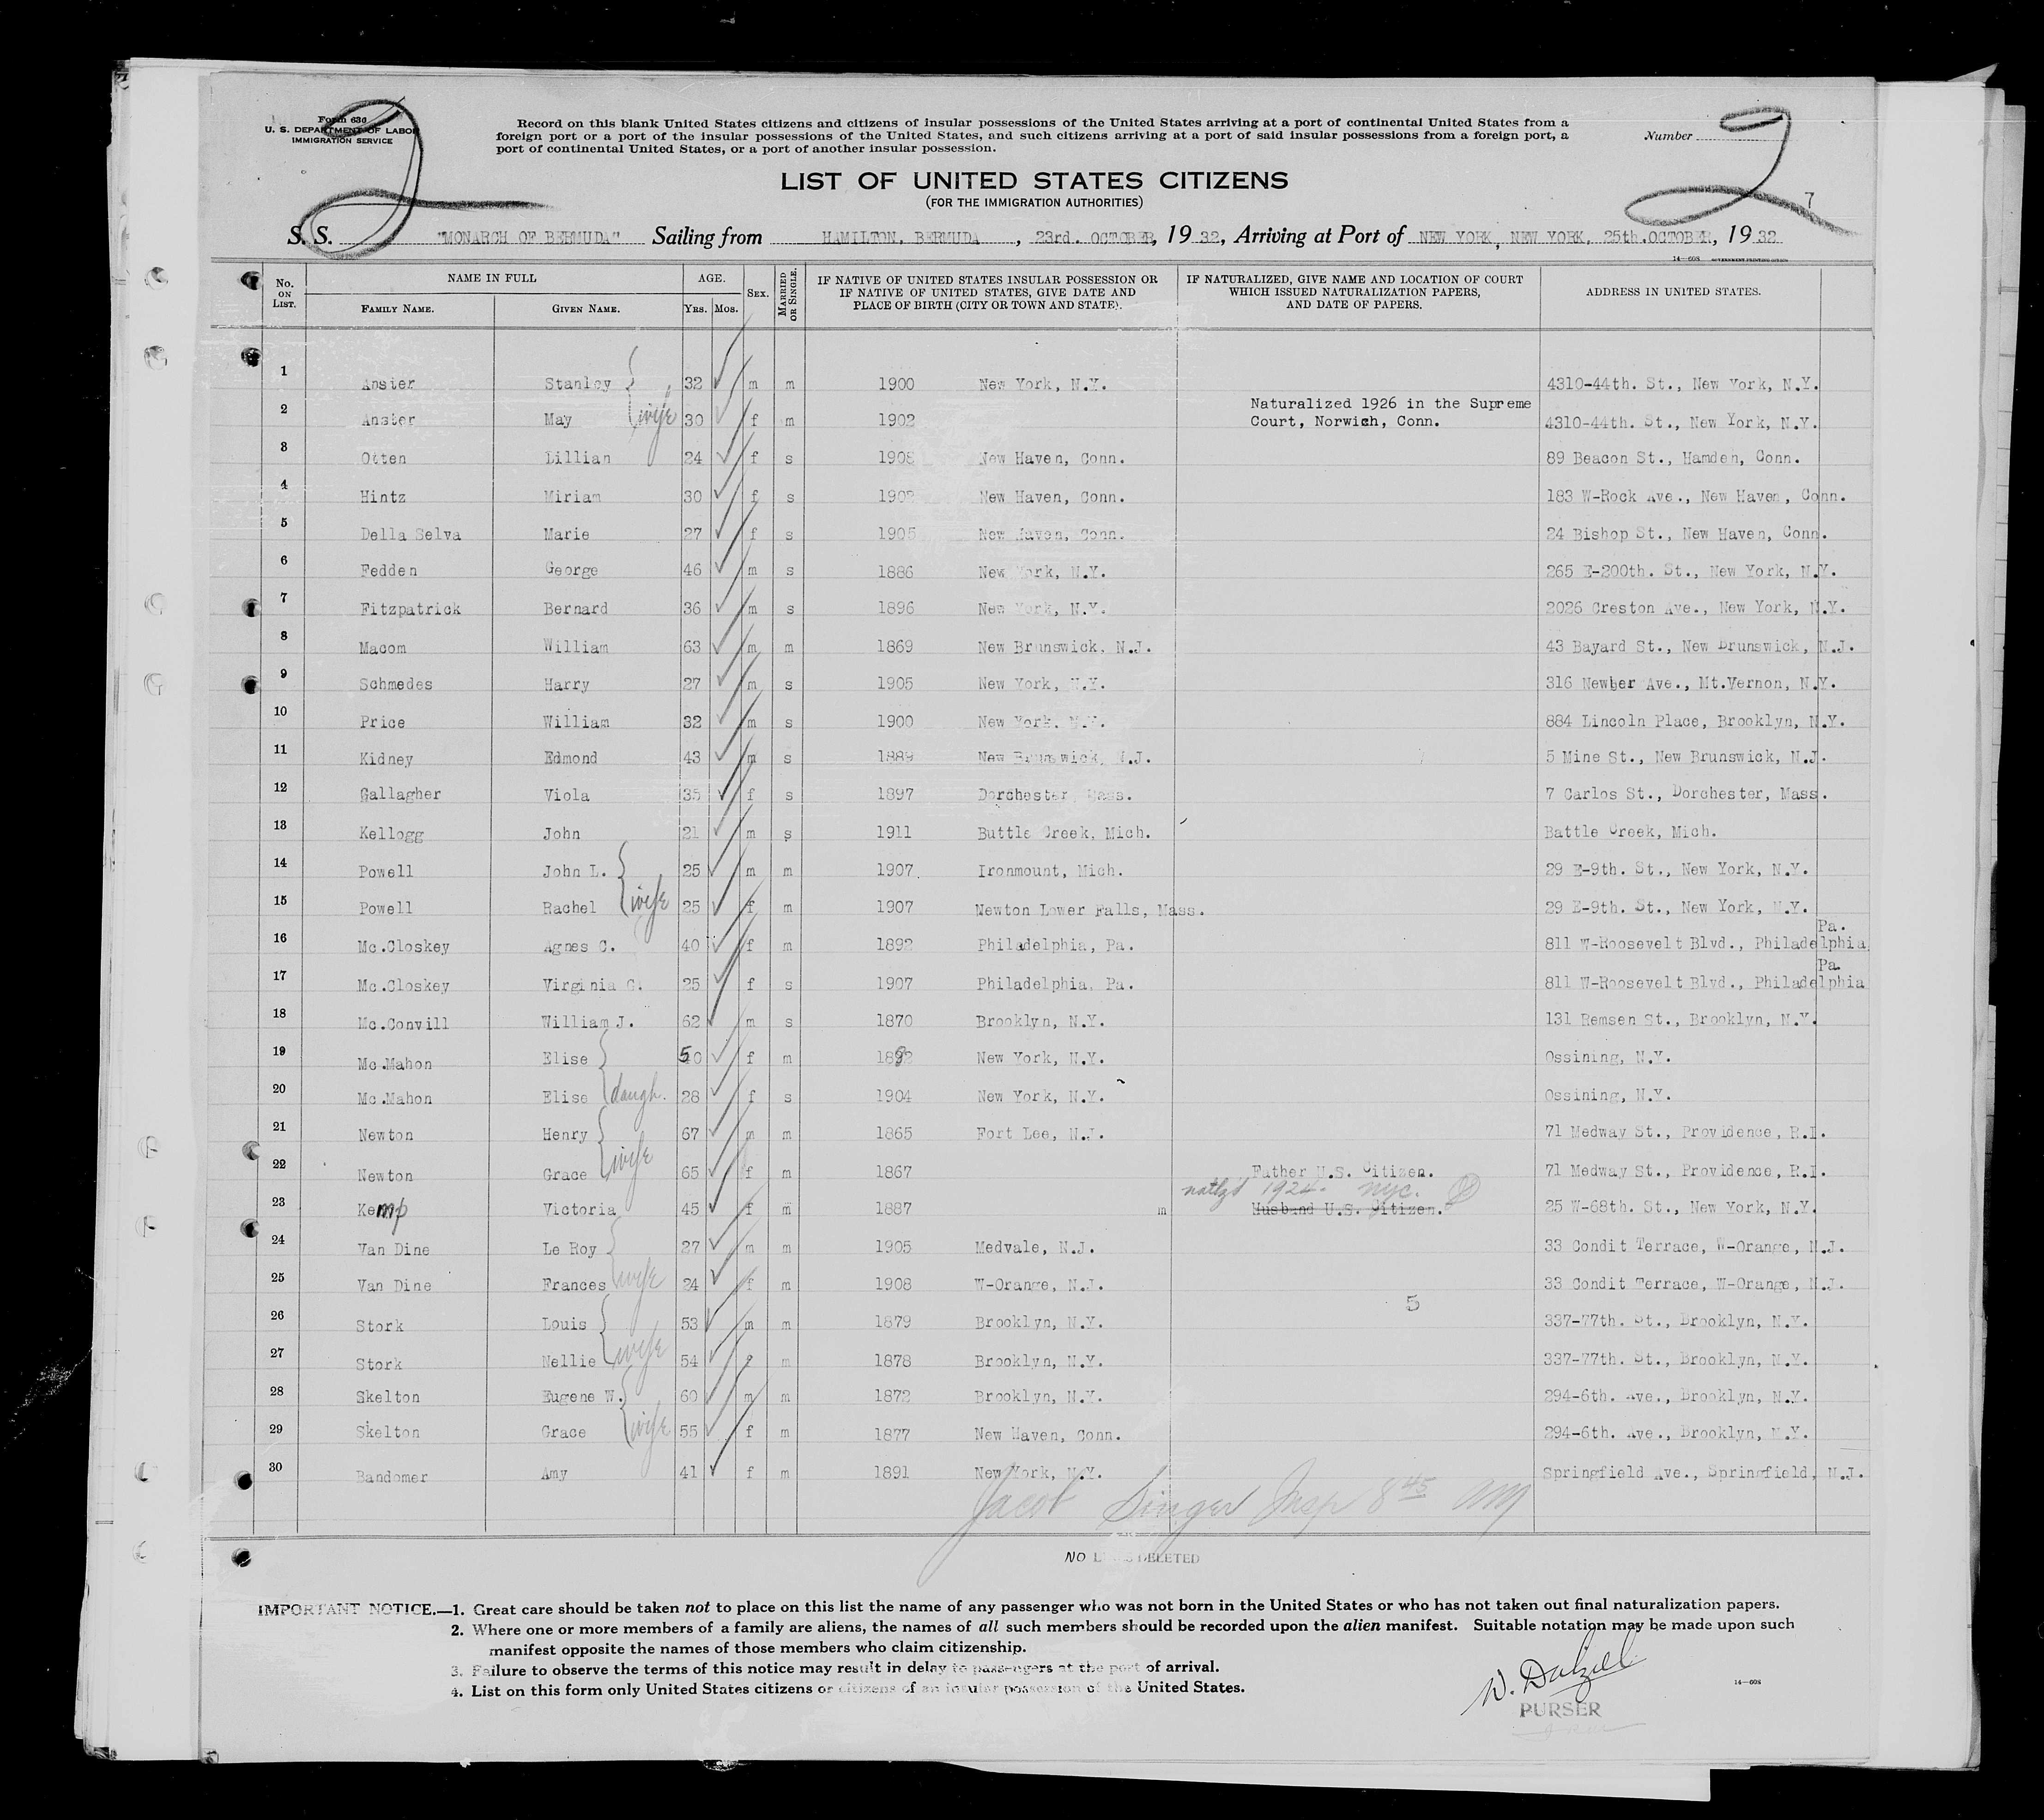 Form 630
U. S. DEPARTMENT OF LABOR
IMMIGRATION SERVICE
2
Record on this blank United States citizens and citizens of insular possessions of the United States arriving at a port of continental United States from a
foreign port or a port of the insular possessions of the United States, and such citizens arriving at a port of said insular possessions from a foreign port, a
port of continental United States, or a port of another insular possession.
Number 2
7
LIST OF UNITED STATES CITIZENS
(FOR THE IMMIGRATION AUTHORITIES)
S. S. "MONARCH OF BERMUDA" Sailing from HAMILTON, BERMUDA, 23rd. OCTOBER, 1932, Arriving at Port of NEW YORK, NEW YORK, 25th. OCTOBER, 1932
14—608 GOVERNMENT PRINTING OFFICE
No. ON LIST. NAME IN FULL FAMILY NAME. GIVEN NAME. AGE. YRS. MOS. SEX. MARRIED OR SINGLE. IF NATIVE OF UNITED STATES INSULAR POSSESSION OR IF NATIVE OF UNITED STATES, GIVE DATE AND PLACE OF BIRTH (CITY OR TOWN AND STATE). IF NATURALIZED, GIVE NAME AND LOCATION OF COURT WHICH ISSUED NATURALIZATION PAPERS, AND DATE OF PAPERS. ADDRESS IN UNITED STATES.
1 Anster Stanley 32 m m 1900 New York, N.Y. 4310-44th. St., New York, N.Y.
2 Anster May wife 30 f m 1902 Naturalized 1926 in the Supreme Court, Norwich, Conn. 4310-44th. St., New York, N.Y.
3 Otten Lillian 24 f s 1908 New Haven, Conn. 89 Beacon St., Hamden, Conn.
4 Hintz Miriam 30 f s 1902 New Haven, Conn. 183 W-Rock Ave., New Haven, Conn.
5 Della Selva Marie 27 f s 1905 New Haven, Conn. 24 Bishop St., New Haven, Conn.
6 Fedden George 46 m s 1886 New York, N.Y. 265 E-200th. St., New York, N.Y.
7 Fitzpatrick Bernard 36 m s 1896 New York, N.Y. 2026 Creston Ave., New York, N.Y.
8 Macom William 63 m m 1869 New Brunswick, N.J. 43 Bayard St., New Brunswick, N.J.
9 Schmedes Harry 27 m s 1905 New York, N.Y. 316 Newber Ave., Mt.Vernon, N.Y.
10 Price William 32 m s 1900 New York, N.Y. 884 Lincoln Place, Brooklyn, N.Y.
11 Kidney Edmond 43 m s 1889 New Brunswick, N.J. 5 Mine St., New Brunswick, N.J.
12 Gallagher Viola 35 f s 1897 Dorchester, Mass. 7 Carlos St., Dorchester, Mass.
13 Kellogg John 21 m s 1911 Buttle Creek, Mich. Battle Creek, Mich.
14 Powell John L. 25 m m 1907. Ironmount, Mich. 29 E-9th. St., New York, N.Y.
15 Powell Rachel wife 25 f m 1907 Newton Lower Falls, Mass. 29 E-9th. St., New York, N.Y.
16 Mc.Closkey Agnes C. 40 f m 1892 Philadelphia, Pa. 811 W-Roosevelt Blvd., Philadelphia, Pa.
17 Mc.Closkey Virginia G. 25 f s 1907 Philadelphia, Pa. 811 W-Roosevelt Blvd., Philadelphia Pa.
18 Mc.Convill William J. 62 m s 1870 Brooklyn, N.Y. 131 Remsen St., Brooklyn, N.Y.
19 Mc.Mahon Elise 50 f m 1882 New York, N.Y. Ossining, N.Y.
20 Mc.Mahon Elise daugh. 28 f s 1904 New York, N.Y. Ossining, N.Y.
21 Newton Henry 67 m m 1865 Fort Lee, N.J. 71 Medway St., Providence, R.I.
22 Newton Grace wife 65 f m 1867 Father U.S. Citizen. 71 Medway St., Providence, R.I.
natlz'd 1924 NYC.
23 Kemp Victoria 45 f m 1887 m Husband U.S. Citizen. 25 W-68th. St., New York, N.Y.
24 Van Dine Le Roy 27 m m 1905 Medvale, N.J. 33 Condit Terrace, W-Orange, N.J.
25 Van Dine Frances wife 24 f m 1908 W-Orange, N.J. 33 Condit Terrace, W-Orange, N.J.
5
26 Stork Louis 53 m m 1879 Brooklyn, N.Y. 337-77th. St., Brooklyn, N.Y.
27 Stork Nellie wife 54 f m 1878 Brooklyn, N.Y. 337-77th. St., Brooklyn, N.Y.
28 Skelton Eugene W. 60 m m 1872 Brooklyn, N.Y. 294-6th. Ave., Brooklyn, N.Y.
29 Skelton Grace wife 55 f m 1877 New Haven, Conn. 294-6th. Ave., Brooklyn, N.Y.
30 Bandomer Amy 41 f m 1891 New York, N.Y. Springfield Ave., Springfield, N.J.
Jacob Singer Insp 8 45 AM
NO LINES DELETED
IMPORTANT NOTICE.—1. Great care should be taken not to place on this list the name of any passenger who was not born in the United States or who has not taken out final naturalization papers.
2. Where one or more members of a family are aliens, the names of all such members should be recorded upon the alien manifest. Suitable notation may be made upon such
manifest opposite the names of those members who claim citizenship.
3. Failure to observe the terms of this notice may result in delay to passengers at the port of arrival.
4. List on this form only United States citizens or citizens of an insular possession of the United States.
W. Dalziel
PURSER
14—608